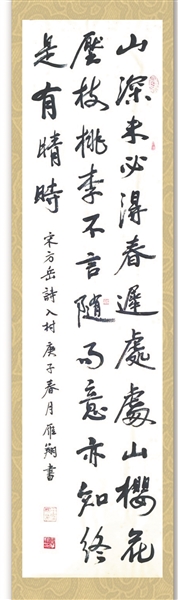 山深未必得春遲處處山櫻花
壓枝桃李不言隨雨意亦知終
是有晴時
宋方岳詩入村 庚子春月雁翔書